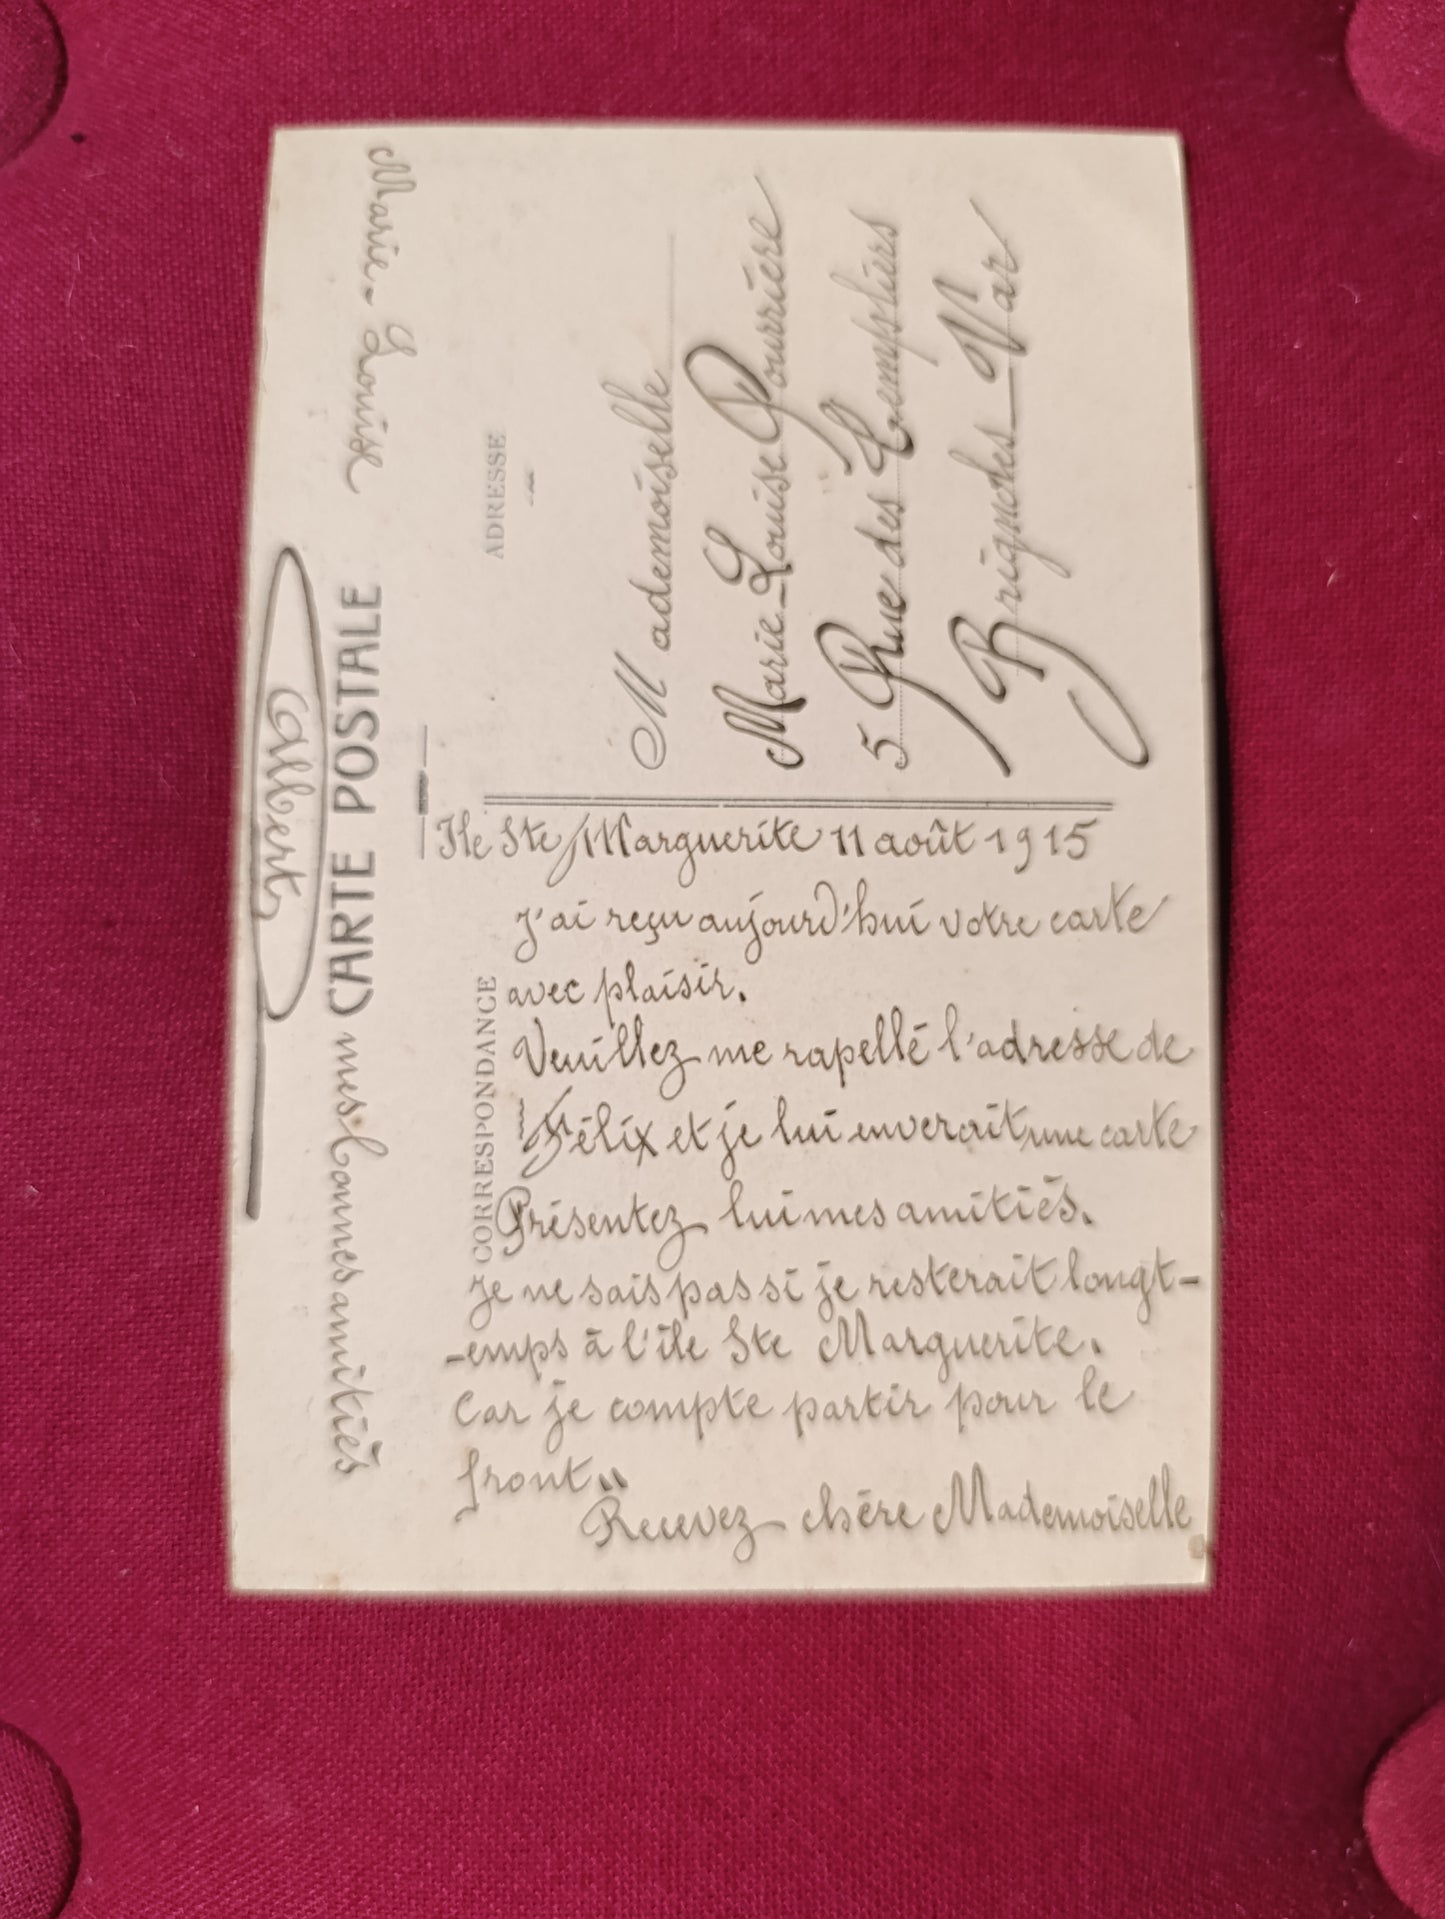 Ile Ste Marguerite 11 août 1915
J'ai reçu aujourd'hui votre carte
avec plaisir.
Veuillez me rapellé l'adresse de
Félix et je lui enverait une carte
Présentez lui mes amitiés.
Je ne sais pas si je resterait longt-
-emps à l'île Ste Marguerite.
Car je compte partir pour le
front..
Recevez chère Mademoiselle
Marie-Louise
mes bonnes amitiés
Albert
CARTE POSTALE
CORRESPONDANCE
ADRESSE
Mademoiselle
Marie-Louise Pourrière
5 Rue des Templiers
Brignoles-Var